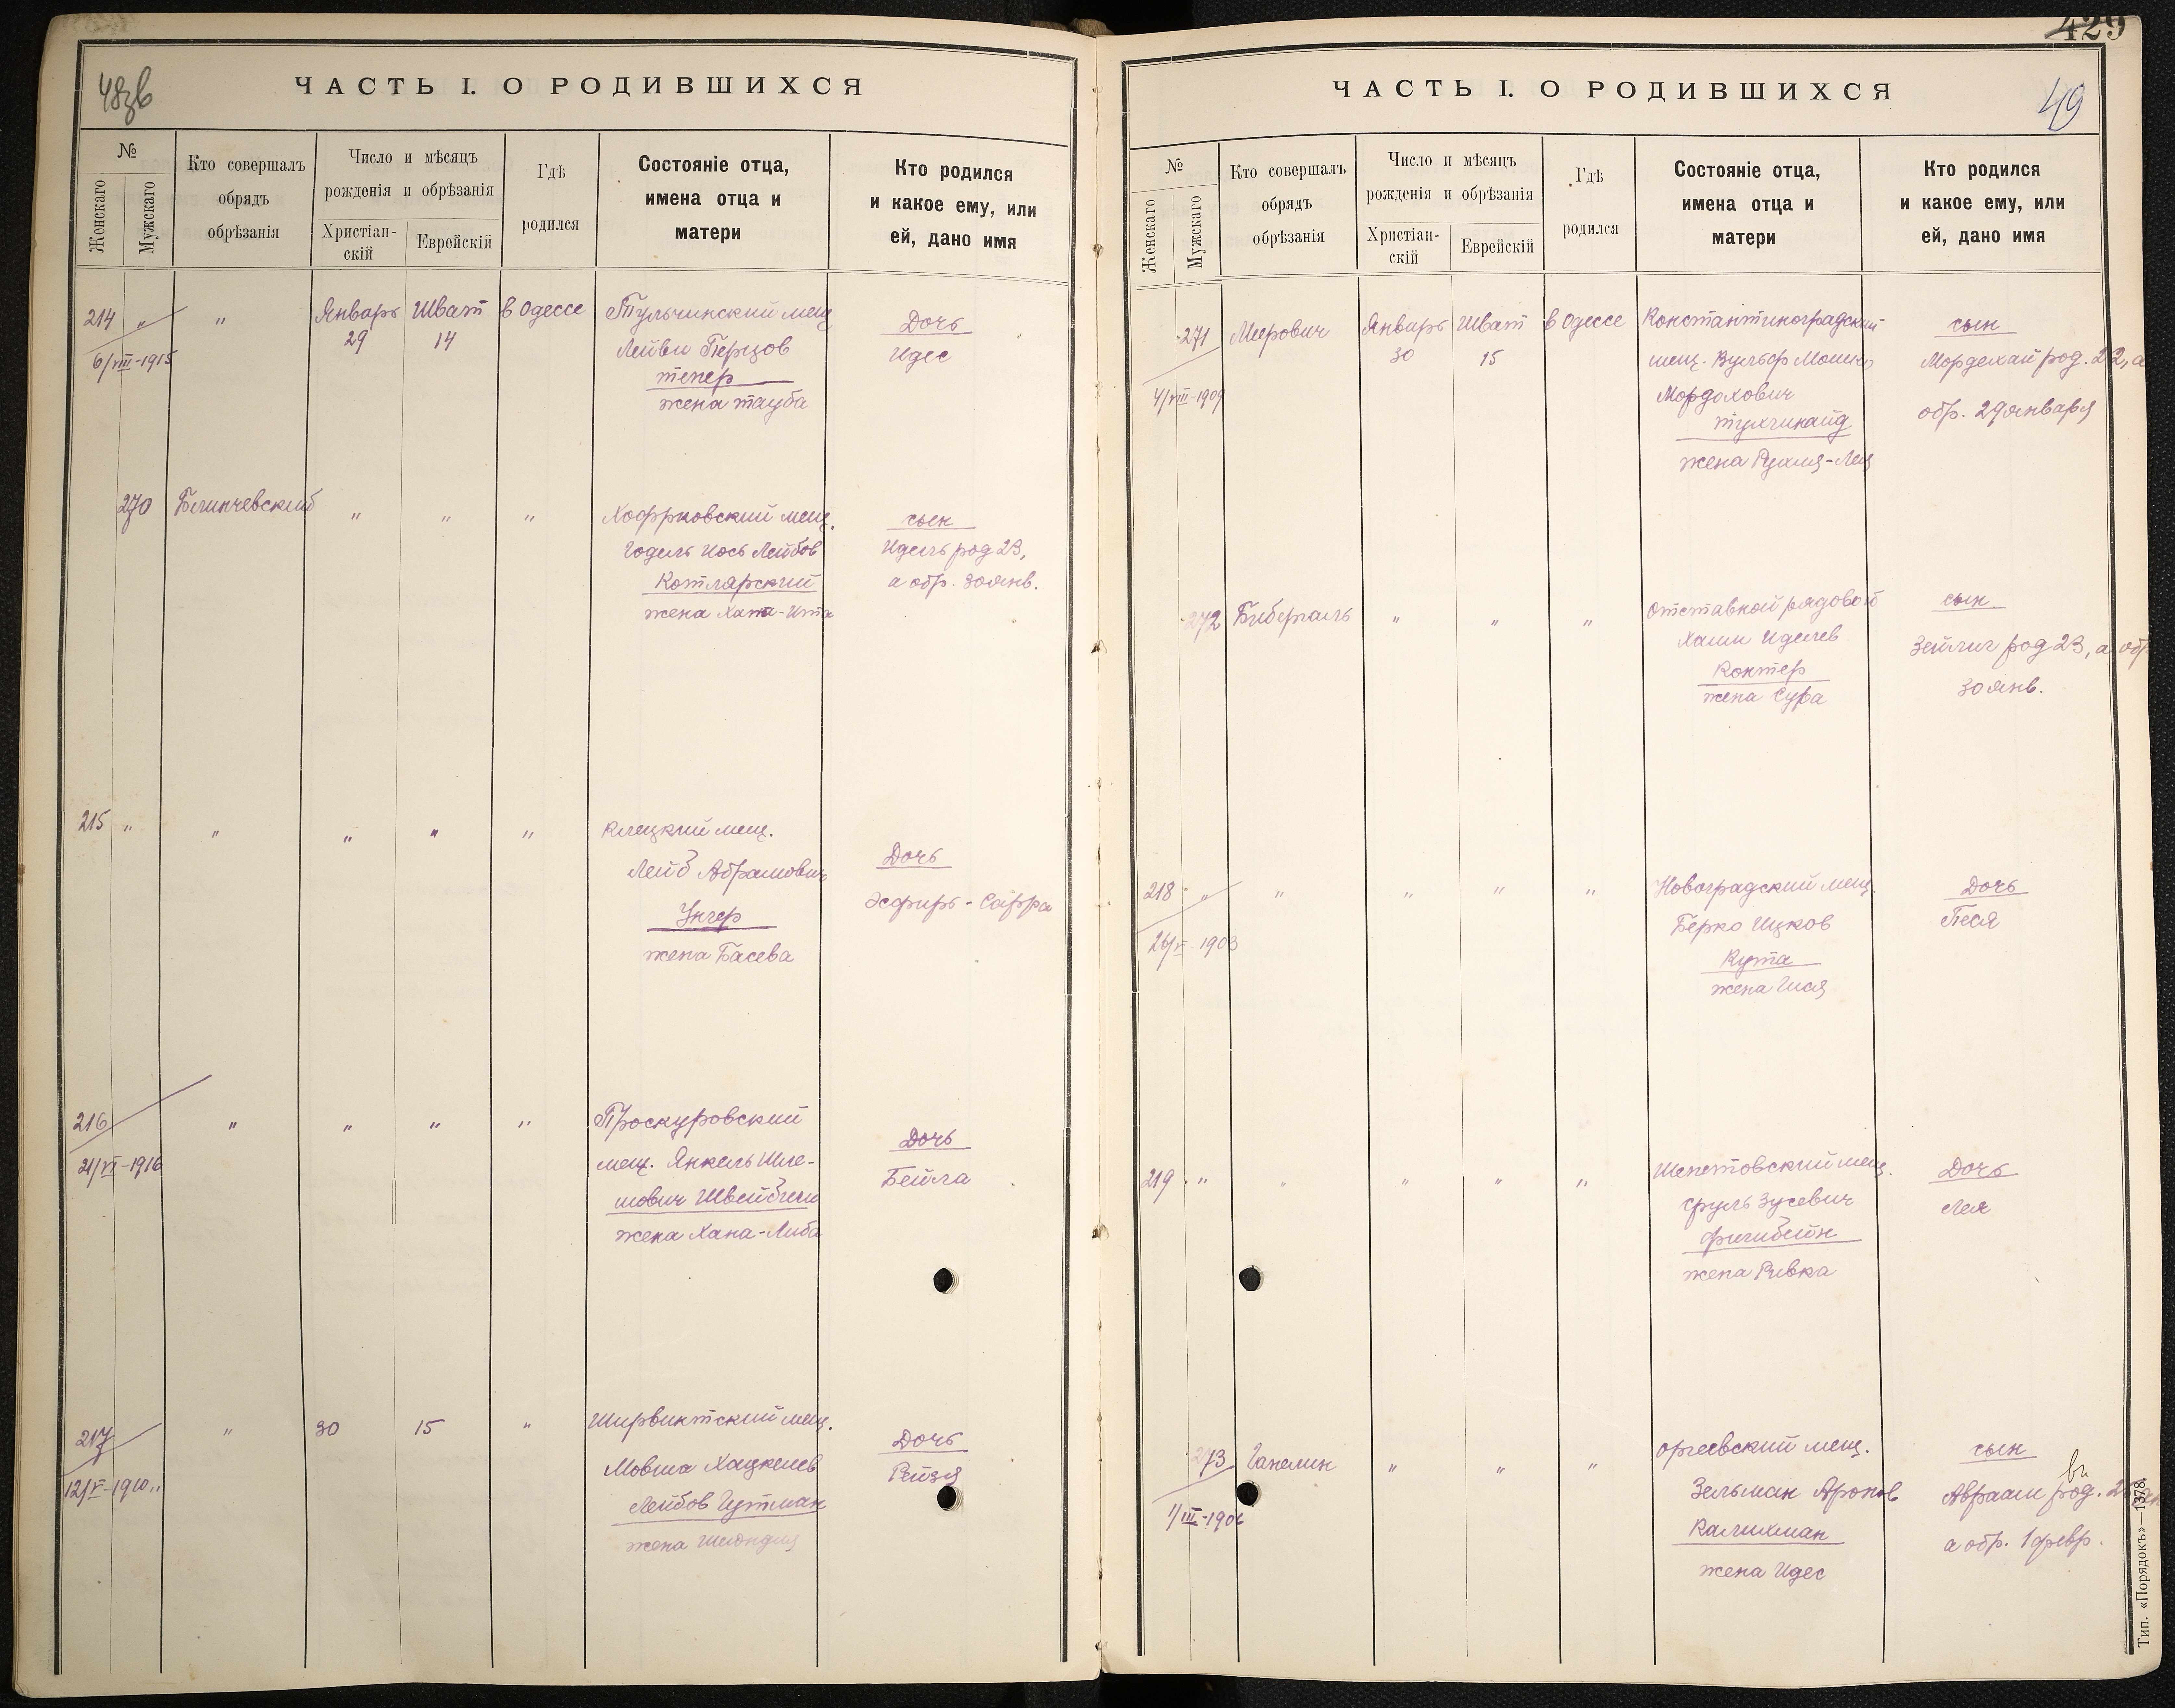 48зв
ЧАСТЬ I. О РОДИВШИХСЯ
№
Женскаго
Мужскаго
Кто совершалъ
обрядъ
обрѣзанія
Число и мѣсяцъ
рожденія и обрѣзанія
Христіан-
скій
Еврейскій
Гдѣ
родился
Состояніе отца,
имена отца и
матери
Кто родился
и какое ему, или
ей, дано имя
214 " " Январь Шват в Одессе Тульчинский мещ
29 14
6/VIII-1915
Лейви Перцов
тепер
жена Тауба
Дочь
Идес
270 Блинчевский " " "
мещ.
Годель Иось Лейбов
Котлярский
жена Хана-Ита
сын
Идель род 23,
а обр. 30 янв.
215 " " " " " Клецкий мещ.
Лейб Абрамович
Унгер
жена Басева
Дочь
Эсфирь - Сарра
216 " " " " Проскуровский
21/VI-1916
мещ. Янкель Шле-
мович
жена Хана-Либа
Дочь
Бейла
217 " 30 15 " Ширвинтский мещ.
12/V-1910 "
Мовша Хацкелев
Лейбов Гутман
жена
Дочь
Рейзя
429
49
ЧАСТЬ I. О РОДИВШИХСЯ
№
Женскаго
Мужскаго
Кто совершалъ
обрядъ
обрѣзанія
Число и мѣсяцъ
рожденія и обрѣзанія
Христіан-
скій
Еврейскій
Гдѣ
родился
Состояніе отца,
имена отца и
матери
Кто родился
и какое ему, или
ей, дано имя
271 Меерович Январь Шват в Одессе Константиноградский
30 15
4/VIII-1909
мещ. Вульф Мошко
Мордохович
жена Рухля-Лея
сын
Мордехай род. 22, а
обр. 29 января
272 Биберталь " " " Отставной рядовой
Хаим Иделев
Контер
жена Сура
сын
Зейлиг род 23, а обр
30 янв.
218 " " " " " Новоградский мещ.
Берко Ицков
Кута
жена Гися
Дочь
Песя
219 " " " " " Шепетовский мещ.
Сруль Зусевич
жена Ривка
Дочь
Лея
273 Ганелин " " " Оргеевский мещ.
1/III-1906
Зельман Аронов
Калихман
жена Идес
сын
Авраам род.
а обр. 1 февр.
Тип. «Порядокъ»—1378.